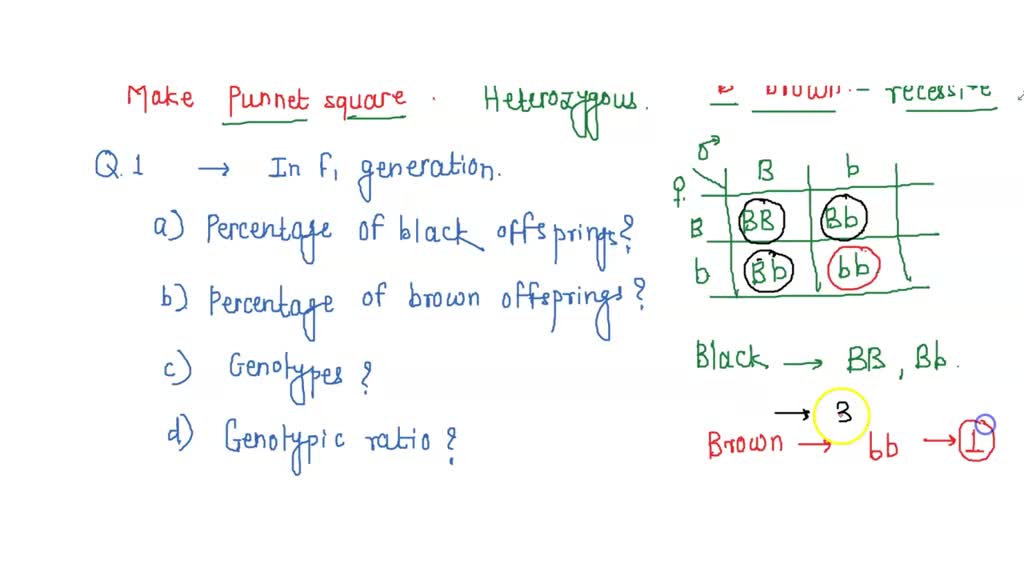 Make Punnet square . Heterozygous.
Brown. - recessive
Q.1 → In F1 generation.
a) Percentage of black offsprings?
b) Percentage of brown offsprings?
c) Genotypes?
d) Genotypic ratio?
♂
♀
B b
B BB Bb
b Bb bb
Black → BB, Bb.
→ 3
Brown → bb → 1